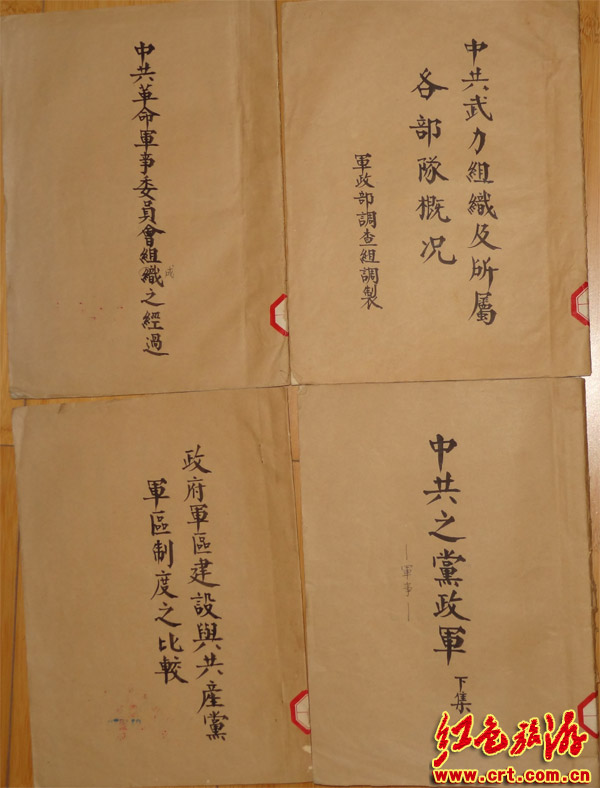 中共革命軍事委員會組織之經過
成
中共武力組織及所屬
各部隊概况
軍政部調查組調製
政府軍區建設與共產黨
軍區制度之比較
中共之黨政軍
下集
—軍事—
红色旅游
www.crt.com.cn